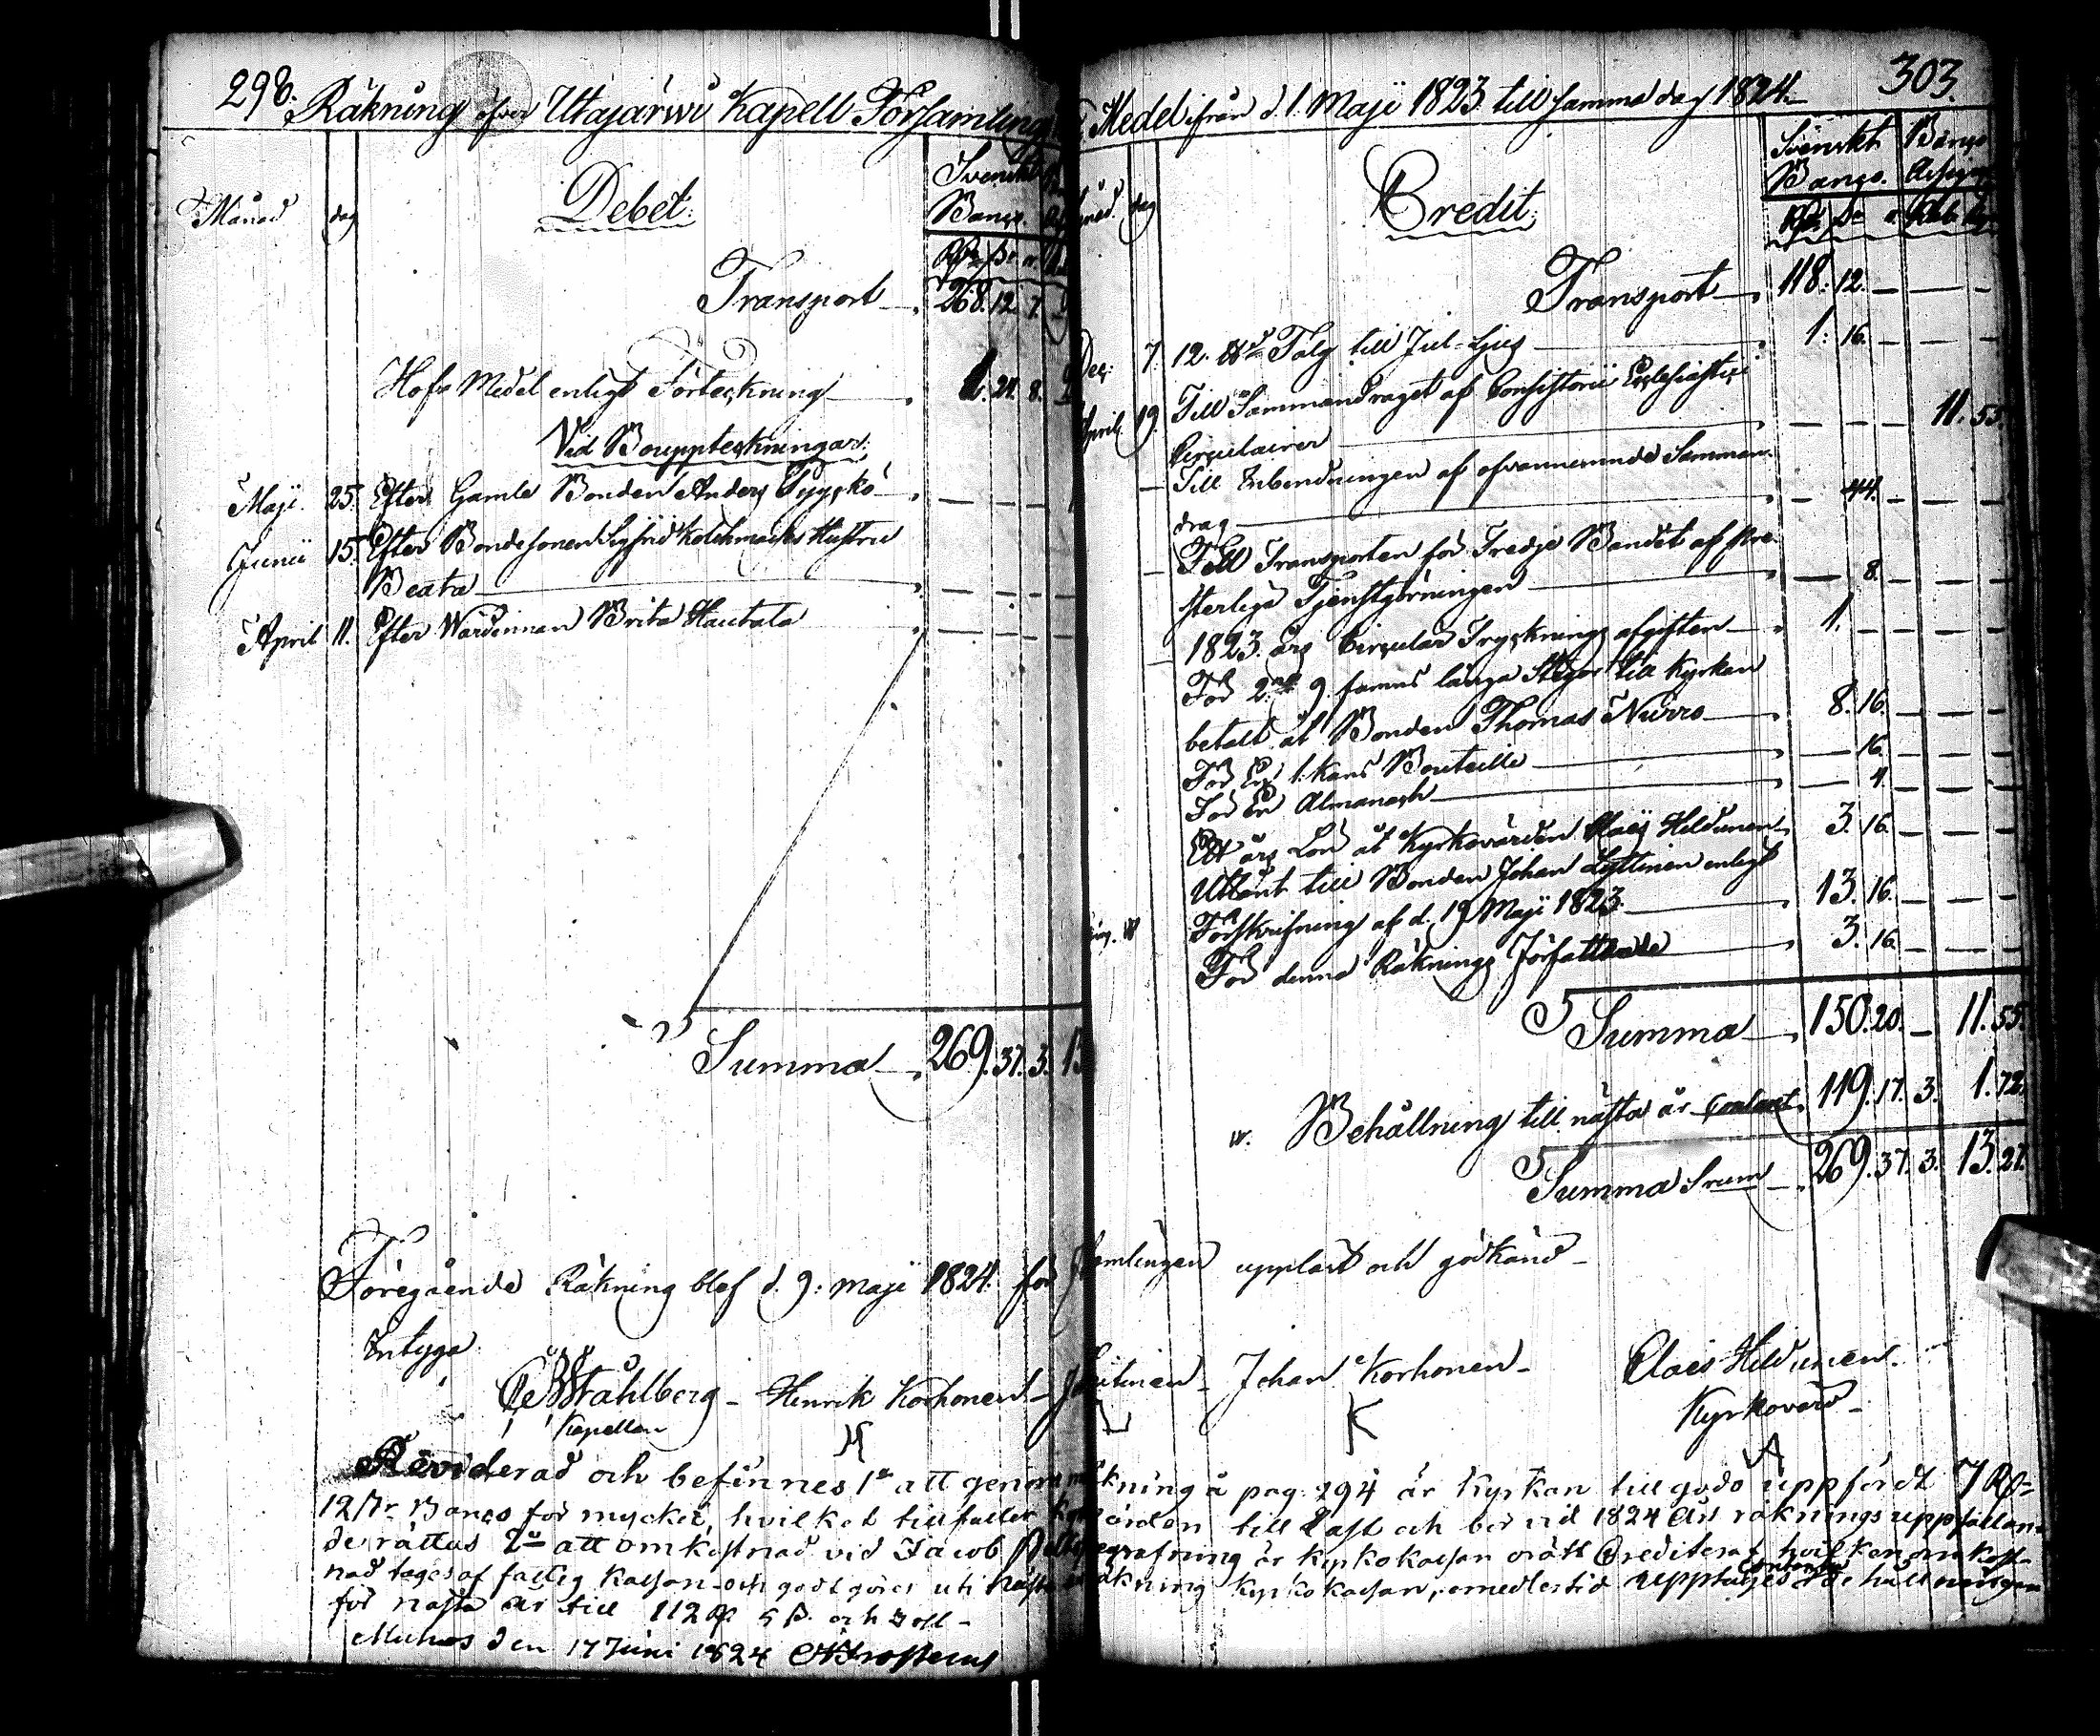 298.
Räkning öfver Utajärwi Kapell Församling
Månad dag Debet. Svenskt
Banco.
Transport 268. 12. 7.
Hofs Medel enligt Förteckning 1. 24. 8.
Vid Bouppteckningar.
Maji. 25. Efter Gamle Bonden Anders
Junii 15. Efter Bondesonen Sigfrid Hustru
Beata
April 11. Efter Wärdinnan Brita Hautala
Summa 269. 37. 3. 13
Föregående Räkning blef d. 9. maji 1824. för
Intyga
Ståhlberg Henrik Korhonen
Kapellan
H
Reviderad och befinnes 1o att genom
12 Banco för mycket, hvilket tillfaller
de rättas 2o att omkostnad vid Jacob
nad tages af fattig Kassan och godtgöres uti näst
för nästa år till 112 5 och
Muhos den 17 Juni 1824
303.
Medel ifrån d. 1. Maji 1823. till samma dag 1824.
dag Credit. Svenskt Banco
Banco.
Transport 118. 12. — —
Dec. 7. 12. Talg till Jul-Ljus 1. 16. — —
April 19. Till Sammandraget af Consistorii Ecclesiastici
Circulairer — — — 11. 55.
— Till Inbindningen af ofvannämnde Samman-
drag — 44. —
— Till Transporten för Tredje Bandet af Pre-
sterliga Tjenstgörningen — 8. — —
— 1823. års Circulär Tryckningsafgiften 1.
För 2. 9. famns långa Stegar till Kyrkan
betalt åt Bonden Thomas Nurro 8. 16. — —
För En 1. Kans Bouteille — 16. — —
För En Almanach — 4. — —
Ett års Lön åt Kyrkovärden Claes Hildunen 3. 16. — —
Utlånt till Bonden Johan Lyttinen enligt
Förskrifning af d. 19 Maji 1823. 13. 16. — —
För denna Räknings författande 3. 16. — —
Summa 150. 20. — 11. 55.
Behållning till nästa år 119. 17. 3. 1. 72.
Summa Sum 269. 37. 3. 13. 27.
samlingen uppläst och godkänd
Johan Korhonen Claes Hildunen.
K Kyrkovärd
räkning å pag. 294 är Kyrkan till godo uppfördt 7
till last och bör vid 1824 års räknings uppfattan-
är Kyrkokassan orätt Crediterat, hvilken omkost-
räkning Kyrkokassan, emedlertid upptages behållningen